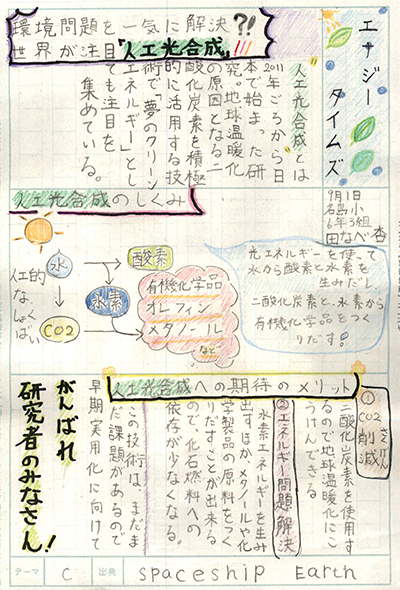 エナジー
タイムズ
環境問題を一気に解決?!
世界が注目『人工光合成』!!!
人工光合成とは
2011年ごろから日
本で始まった研
究。地球温暖化
の原因となる二
酸化炭素を積極
的に活用する技
術で「夢のクリーン
エネルギー」とし
ても注目を
集めている。
9月1日
名島小
6年3組
田なべ杏
人工光合成のしくみ
水
酸素
人工的
な、
しょく
ばい
水素
CO2
有機化学品
オレフィン
メタノール
など
光エネルギーを使って
水から酸素と水素を
生みだし
二酸化炭素と、水素から
有機化学品をつく
りだす!
人工光合成への期待のメリット
①CO2削減
さくげん
二酸化炭素を使用す
るので地球温暖化にこ
うけんできる
②エネルギー問題解決
水素エネルギーを生み
出すほか、メタノールや化
学製品の原料をつく
りだすことが出来る
ので、化石燃料への
依存が少なくなる。
この技術は、まだま
だ課題があるので
早期実用化に向けて
がんばれ
研究者のみなさん!
テーマ C 出典 spaceship Earth